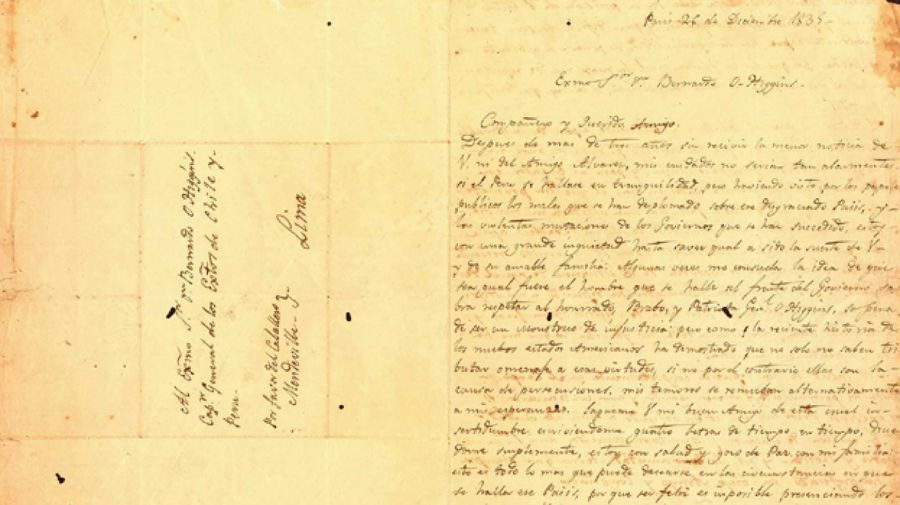 Al Exmo Sor. Dn. Bernardo O Higgins.
Capn. General de los Extos de Chile y
Peru.
Por favor del Caballero
Mendeville.
Lima
Paris 26 de Diciembre 1835
Exmo Sor. Dn. Bernardo O-Higgins.
Compañero y Querido Amigo.
Despues de mas de tres años sin recivir la menor noticia de
V. ni del Amigo Alvarez, mis cuidados no serian tan alarmantes
si el Peru se hallase en tranquilidad, pero haviendo visto por los papeles
publicos los males que se han desplomado sobre ese desgraciado Paiis, y
las violentas mutaciones de los Goviernos que se han succedido, estoy
con una grande inquietud hasta saver qual a sido la suerte de V.
y de su amable familia: Algunas veces me consuela la idea de que
sea qual fuere el hombre que se halle al frente del Govierno sa-
bra respetar al honrrado, Brabo, y Patriota Genl. O Higgins, so pena
de ser un monstruo de injusticia: pero como la reciente historia de
los nuebos estados Americanos ha demostrado que no solo no saben tri
butar omenaje a esas virtudes, si no por el contrario ellas son la
causa de persecuciones, mis temores se remueban alternativamente
a mis esperanzas. Saqueme V mi buen Amigo de esta cruel in-
sertidumbre enviandome quatro letras de tiempo en tiempo, dicien
dome simplemente, estoy con salud y goso de Paz con mi familia:
esto es todo lo mas que puede desearse en las circunstancias en que
se halla ese Paiis, por que ser feliz es imposible presenciando los